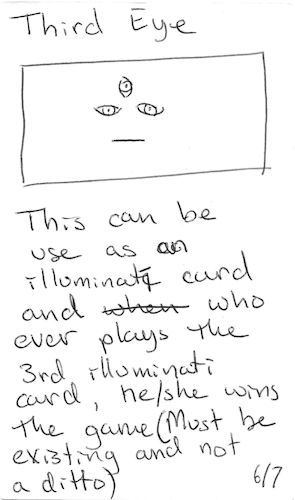 Third Eye
This can be
use as an
illuminati card
and when who
ever plays the
3rd illuminati
card, he/she wins
the game (Must be
existing and not
a ditto)
6/7